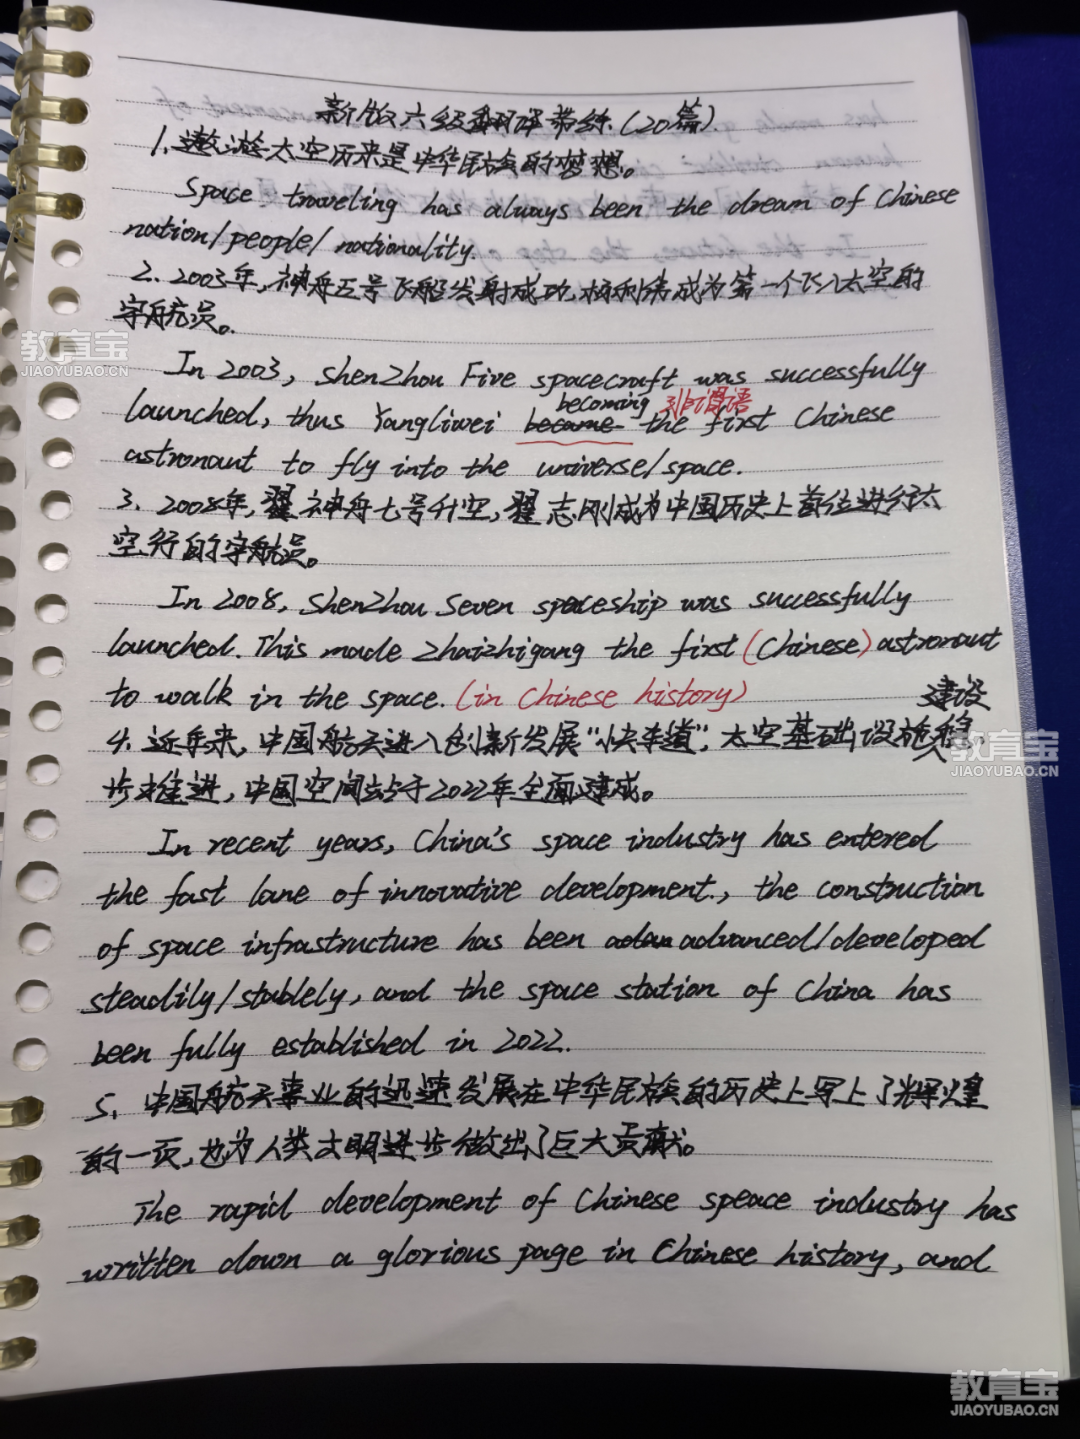 新版六级翻译带练(20篇)
1.遨游太空历来是中华民族的梦想。
Space traveling has always been the dream of Chinese
nation/people/nationality.
2. 2003年,神舟五号飞船发射成功,杨利伟成为第一个飞入太空的
宇航员。
In 2003, ShenZhou Five spacecraft was successfully
becoming 非谓语
launched, thus Yangliwei became the first Chinese
astronaut to fly into the universe/space.
3. 2008年,翟神舟七号升空,翟志刚成为中国历史上首位进行太
空行的宇航员。
In 2008, ShenZhou Seven spaceship was successfully
launched. This made Zhaizhigang the first (Chinese) astronaut
to walk in the space. (in Chinese history)
建设
4. 近年来,中国航天进入创新发展“快车道”,太空基础设施稳
步推进,中国空间站于2022年全面建成。
In recent years, China's space industry has entered
the fast lane of innovative development., the construction
of space infrastructure has been advanced/developed
steadily/stablely, and the space station of China has
been fully established in 2022.
5. 中国航天事业的迅速发展在中华民族的历史上写上了辉煌
的一页,也为人类文明进步做出了巨大贡献。
The rapid development of Chinese speace industry has
written down a glorious page in Chinese history, and
教育宝
JIAOYUBAO.CN
教育宝
JIAOYUBAO.CN
教育宝
JIAOYUBAO.CN